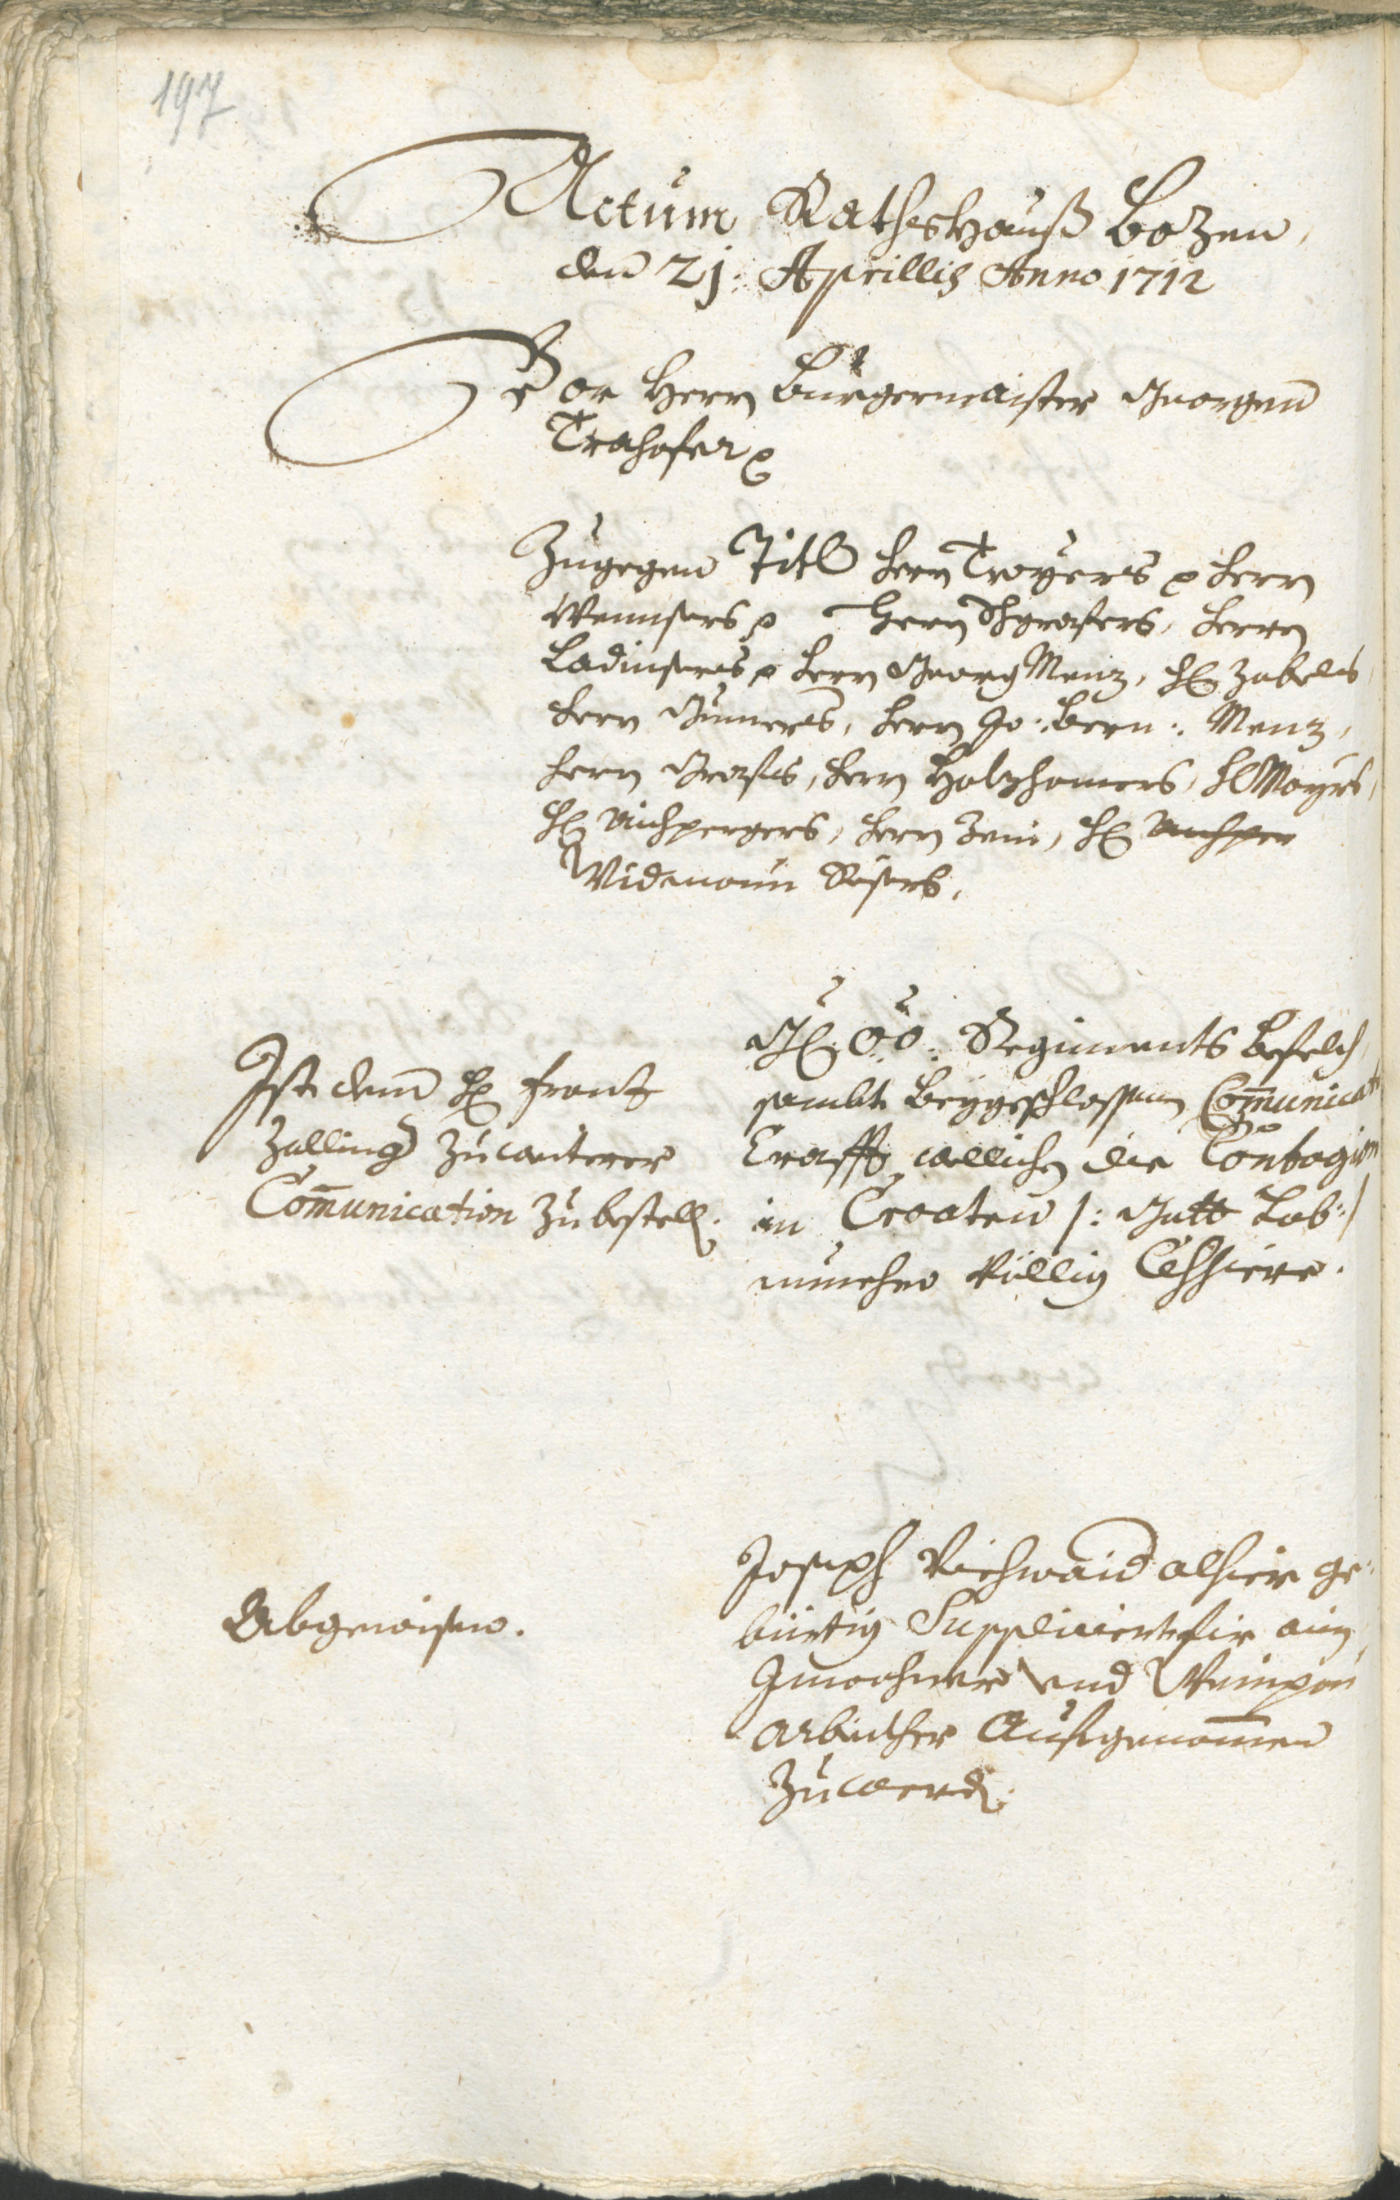 197
Actum Ratheshauß Bozen,
den 21: Aprillis Anno 1712
Vor Herrn Burgermaister Georgen
Trahofer
Zugegen Titl Herrn Troyers Herrn
Wenisers Herrn Herrn
Ladinsers Herrn Georg Menz, H
Herrn Gumers, Herrn Jo: Bern: Menz,
Herrn Grafis, Herrn Holzhamers, H Mayrs,
H Aichpergers, Herrn Zeni, H
Widmann Rösers,
Ist dem H Franz
Zalling zu weiterer
Communication zubestell.
Ih: OÖ: Regiments Befelch
sambt beygeschlossnen Communicat
Crafft wellichen die Contagion
in Croaten /: Gott Lob :/
nunmehro völlig Cessiere.
Abgewisen.
Joseph Viehwaid alhier ge-
bürtig Suppliciert fir ain
Inwohner und Weinpau
arbeither Aufgenommen
zuwerd.